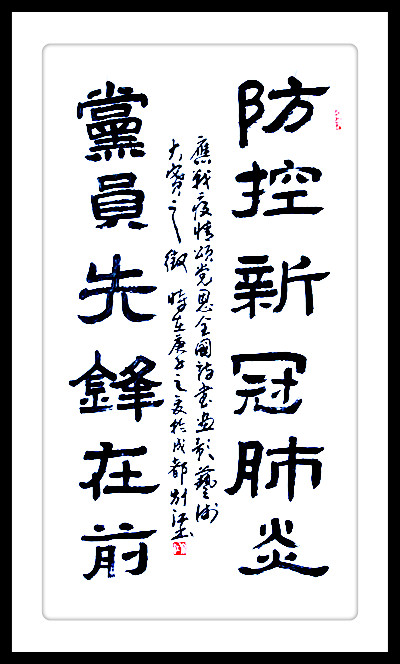 防控新冠肺炎
應戰疫情頌党恩全國詩書畫影藝術
大賽之徵 時在庚子之夏於成都
黨員先鋒在前